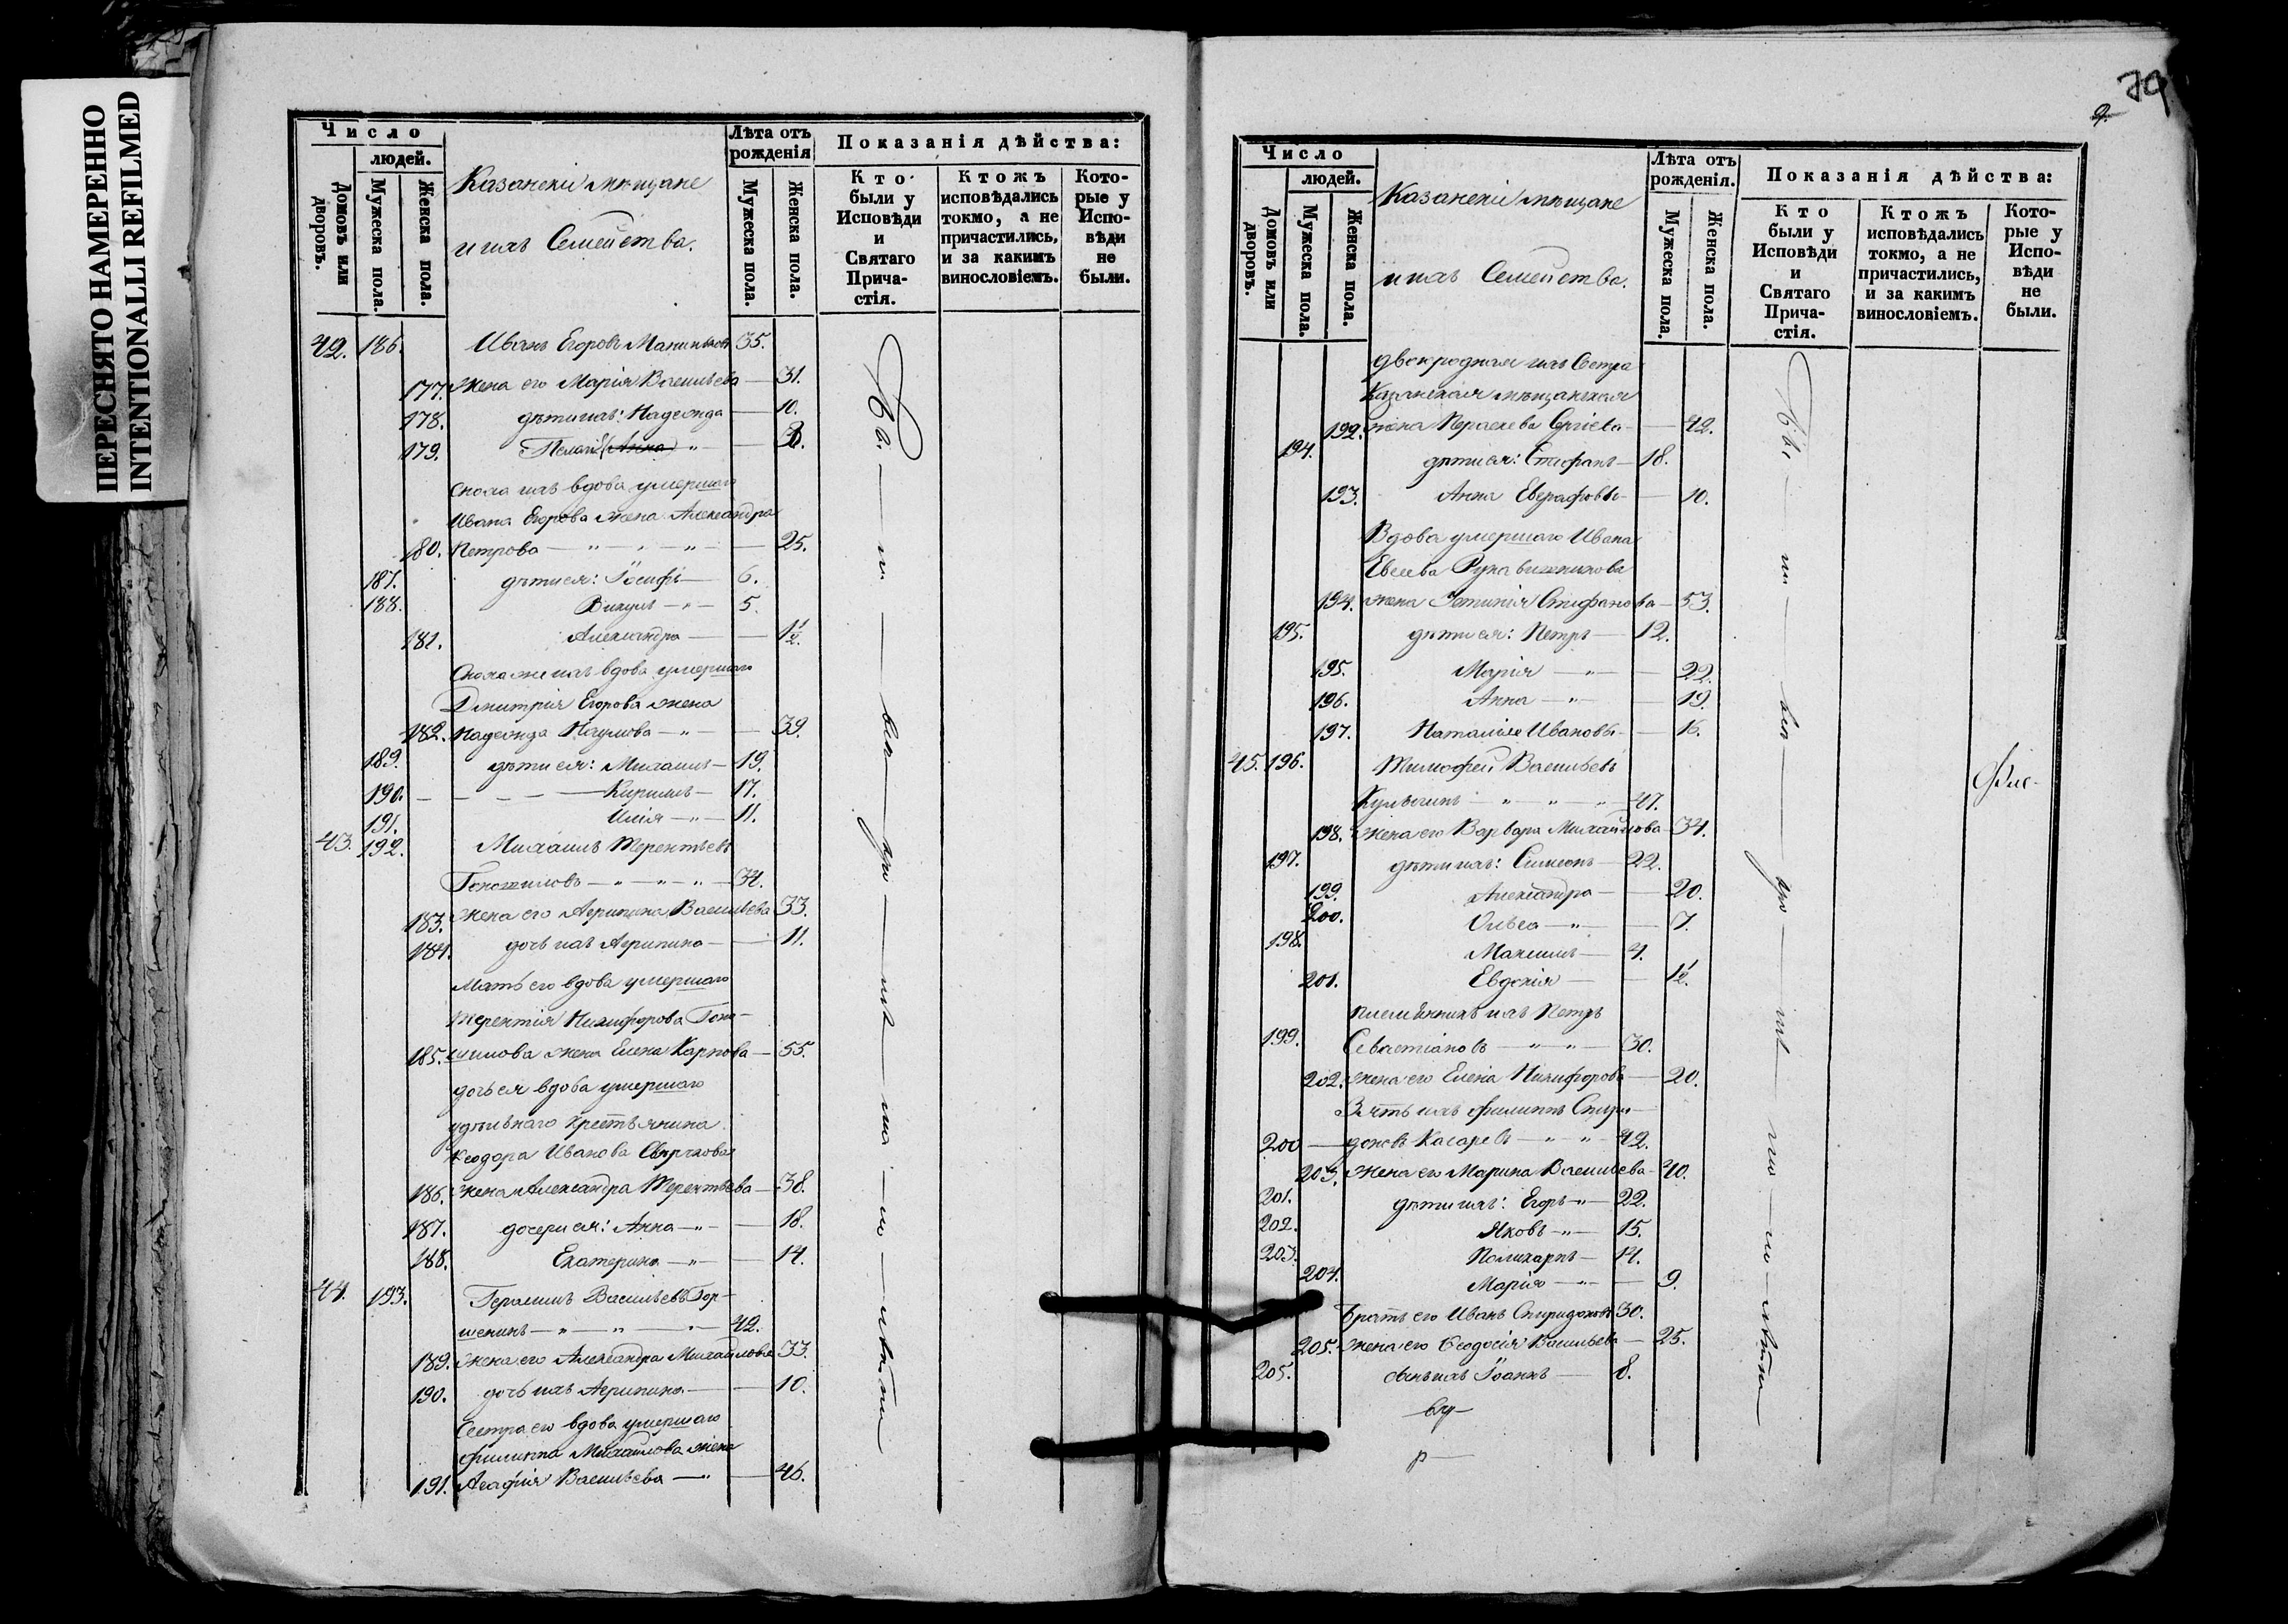 ПЕРЕСНЯТО НАМЕРЕННО
INTENTIONALLI REFILMED
Число
людей.
Домовъ или дворовъ.
Мужеска пола.
Женска пола.
Казанскіи мѣщане
и ихъ Семейства.
Лѣта отъ рожденія
Мужеска пола.
Женска пола.
Показанія дѣйства:
Кто были у Исповѣди и Святаго Прича-стія.
Ктожъ исповѣдались токмо, а не причастились, и за какимъ винословіемъ.
Кото-рые у Испо-вѣди не были.
42. 186. Иванъ Егоровъ 35.
177. Жена его Марія Васильева — 31.
178. дѣти ихъ: Надежда — 10.
179. (Анна) " —
Сноха ихъ вдова умершаго
Ивана Егорова жена Александра
180. Петрова — " — " — " — 25.
187. дѣти ея: Іосифъ — 6.
188. Викулъ — " — 5.
181. Александра — 1½.
Сноха же ихъ вдова умершаго
Дмитрія Егорова жена
182. Надежда Наумова — " — 39.
189. дѣти ея: Михаилъ — 19.
190. — — — — Кирилъ — 17.
191. Илія — " — 11.
43. 192. Михаилъ Терентьевъ
— " — " — " — 34.
183. Жена его Агрипина Васильева 33.
184. дочь ихъ Агрипина — 11.
Мать его вдова умершаго
Терентія Никифорова
185. жена Елена Карпова — 55.
дочь ея вдова умершаго
удѣльнаго крестьянина
Ѳеодора Иванова
186. жена Александра Терентьева — 38.
187. дочери ея: Анна — " — 18.
188. Екатерина — " — 14.
44. 193. Герасимъ Васильевъ Гор-
шенинъ — " — " — " — 42.
189. Жена его Александра Михайлова 33.
190. дочь ихъ Агрипина — 10.
Сестра его вдова умершаго
Филиппа Михайлова жена
191. Агафія Васильева — " — 46.
79
Число
людей.
Домовъ или дворовъ.
Мужеска пола.
Женска пола.
Казанскіи мѣщане
и ихъ Семейства.
Лѣта отъ рожденія.
Мужеска пола.
Женска пола.
Показанія дѣйства:
Кто были у Исповѣди и Святаго Прича-стія.
Ктожъ исповѣдались токмо, а не причастились, и за какимъ винословіемъ.
Кото-рые у Испо-вѣди не были.
двоюродная ихъ Сестра
Казанская мѣщанская
192. жена Параскева Сергіева — 42.
194. дѣти ея: Стефанъ — 18.
193. Анна Евграфовы — 10.
Вдова умершаго Ивана
Евсеева Рукавишникова
194. жена Стефанова — 53.
195. дѣти ея: Петръ — 12.
195. Марія — " — 22.
196. Анна — " — 19.
197. Наталія Ивановы — 16.
45. 196. Тимофей Васильевъ
— " — " — " 47.
198. Жена его Варвара Михайлова — 34.
197. дѣти ихъ: Симеонъ — 22.
199. Александра — 20.
200. Ольга — " — 7.
198. Максимъ — 4.
201. Евдокія — 1½.
племянникъ ихъ Петръ
199. Севастіановъ — " — " — 30.
202. Жена его Елена Никифорова — 20.
Зять ихъ Филиппъ Спири-
200 — доновъ Касаревъ — " — " — 42.
203. Жена его Марина Васильева — 40.
201. дѣти ихъ: Егоръ — " — 22.
202. Яковъ — " — 15.
203. Поликарпъ — 14.
204. Марія — " — 9.
Братъ его Иванъ Спиридоновъ 30.
205. Жена его Ѳеодосія Васильева — 25.
205. сынъ ихъ Іоаннъ — 8.